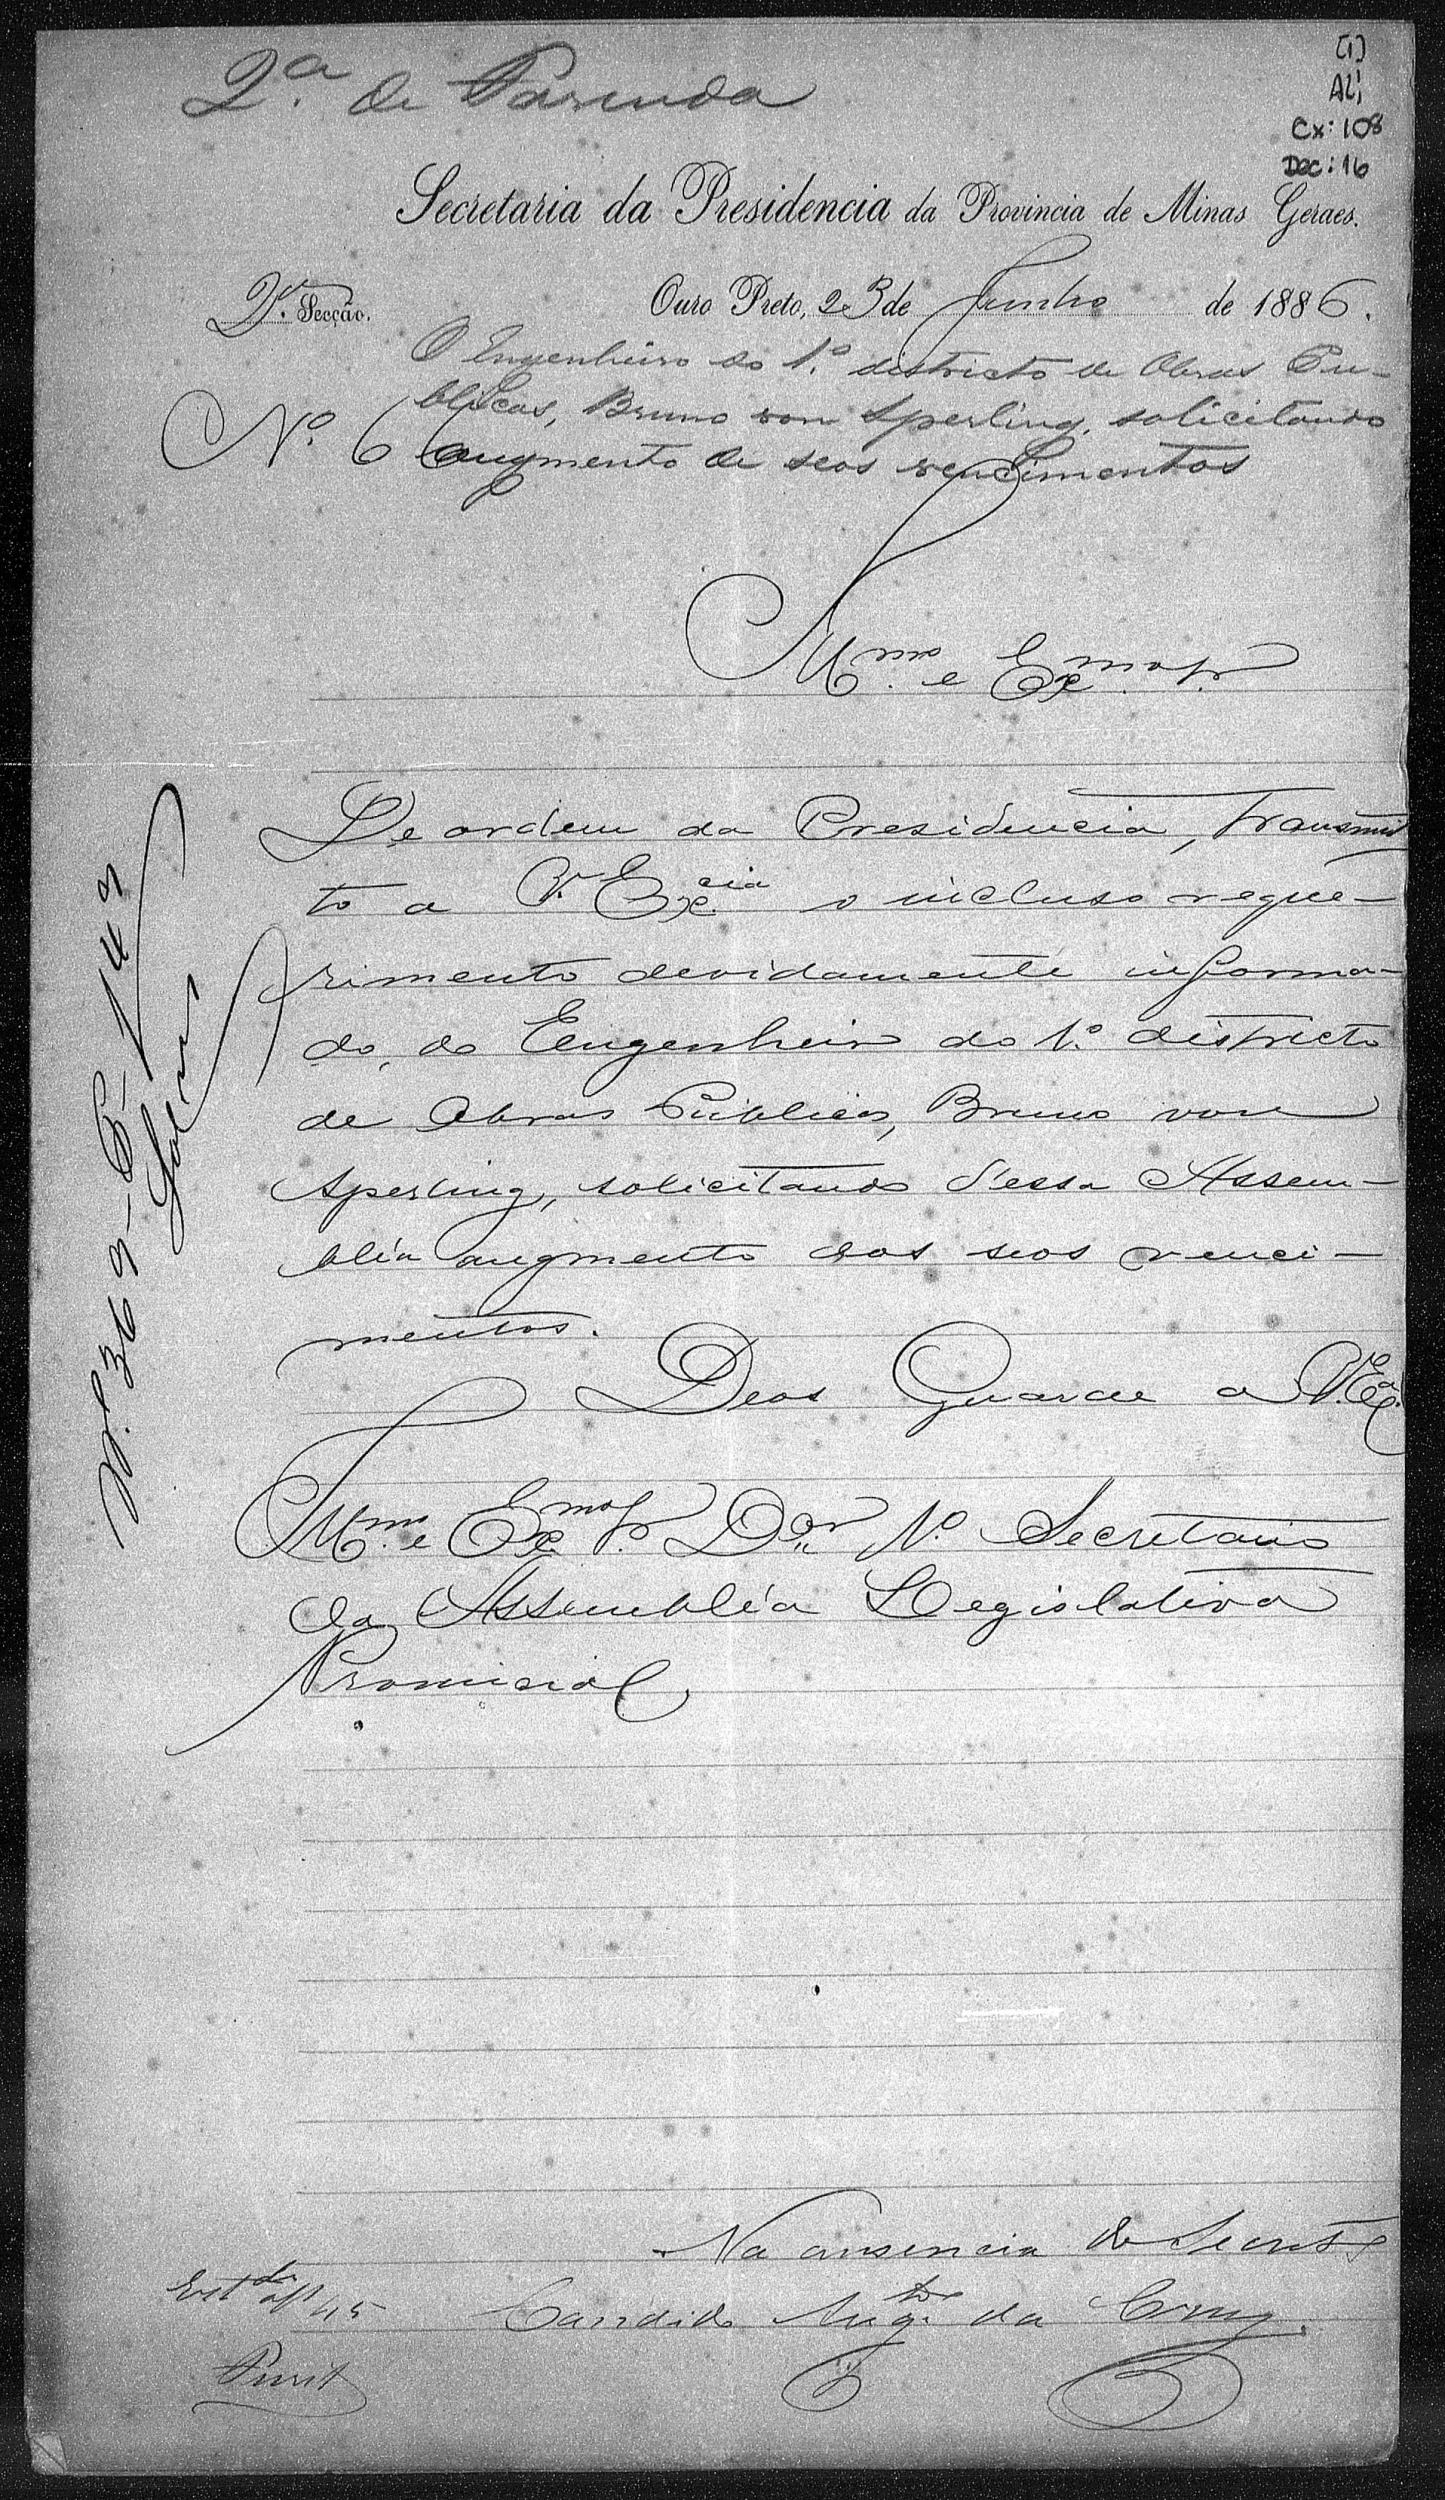 [1]
AL;
Cx: 108
Doc: 16
2.ª de Fazenda
Secretaria da Presidencia da Provincia de Minas Geraes.
2.ª Secção.
Ouro Preto, 23 de Junho de 1886.
O Engenheiro do 1.º districto de Obras Pu-
blicas, Bruno von Sperling, solicitando
augmento de seos vencimentos
N.º 66
Illm.mo e Ex.mo Sr.
De ordem da Presidencia, transmit
to a V. Ex.cia o incluso reque-
rimento devidamente informa-
do, do Engenheiro do 1.º districto
de Obras Publicas, Bruno von
Sperling, solicitando d'essa Assem-
bléa augmento dos seos venci-
mentos.
Deos Guarde a V. Ex.ª
Ill.mo e Ex.mo Sr. D.or 1.º Secretario
da Assembléa Legislativa
Provincial.
Na ausencia do Secret.º
Candido Aug.to da Cruz